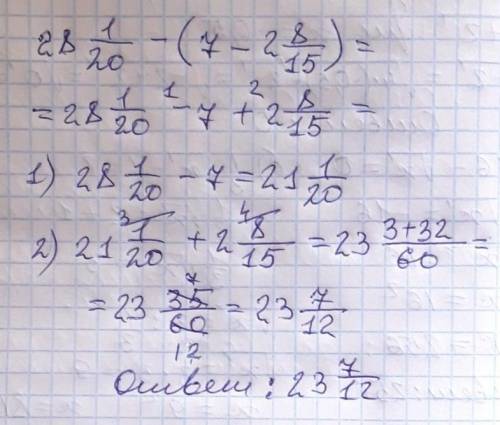 28 1/20 - (7 - 2 8/15) =
= 28 1/20 -¹ 7 +² 2 8/15 =
1) 28 1/20 - 7 = 21 1/20
2) 21 ³1/20 + 2 ⁴8/15 = 23 3+32/60 =
= 23 35/60 7/12 = 23 7/12
Ответ: 23 7/12